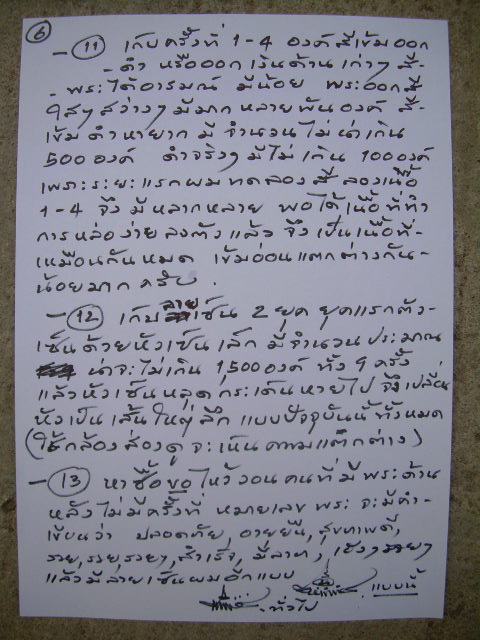 6
- 11 เก็บครั้งที่ 1-4 องค์สีเข้มออก
- ดำ หรือออก เงินด้านเก่าๆ สี-
- พระได้อารมณ์ มีน้อย พระออกสี
ใสๆ สว่างๆ มีมาก หลายพันองค์ สี-
เข้ม ดำ หายาก มี จำนวน ไม่น่าเกิน
500 องค์ ดำจริงๆ มีไม่เกิน 100 องค์
เพราะระยะแรกผมทดลองสี ลองเนื้อ
1-4 จึง มี หลากหลาย พอได้เนื้อที่ทำ
การหล่อง่าย ลงตัวแล้ว จึงเป็นเนื้อที่-
เหมือนกันหมด เข้มอ่อนแตกต่างกัน-
น้อยมาก ครับ.
- 12 เก็บลายเซ็น 2 ยุค ยุคแรกตัว-
เซ็นด้วยหัวเซ็นเล็ก มีจำนวนประมาณ
น่าจะไม่เกิน 1,500 องค์ ทั้ง 9 ครั้ง
แล้วหัวเซ็นหลุดกระเด็นหายไป จึงเปลี่ยน
หัวเป็น เส้นใหญ่ลึก แบบปัจจุบันนี้ ทั้งหมด
(ใช้กล้องส่องดู จะเห็นความแตกต่าง)
- 13 หาซื้อขอไหว้วอนคนที่มีพระด้าน
หลังไม่มีครั้งที่ หมายเลข พระ จะมีคำ-
เขียนว่า ปลอดภัย, อายุยืน, สุขภาพดี,
รวย, รวย, รวยๆ, สำเร็จ, มีลาภ, เฮงๆ รวยๆ
แล้วมีลายเซ็นผมอีกแบบ แบบนี้
ทั่วไป